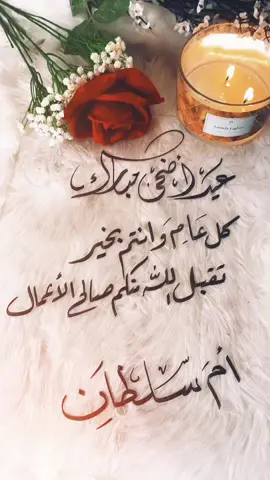 عيد أضحى مبارك
كل عام وانتم بخير
تقبل الله منكم صالح الأعمال
أم سلطان